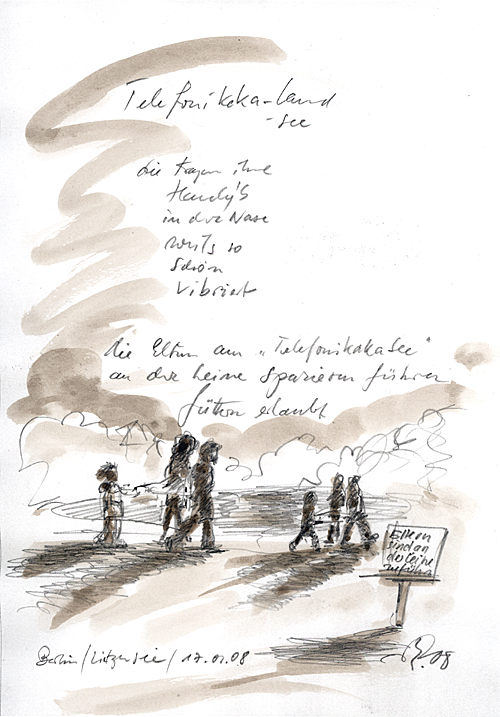 Telefonikaka-land
-see
die tragen ihre
Handy's
in der Nase
weils so
schön
vibriert
die Eltern am "Telefonikakasee"
an der Leine spazieren führen
füttern erlaubt
Eltern
sind an
der Leine
zu führen
Berlin/Lietzensee/17.01.08
08